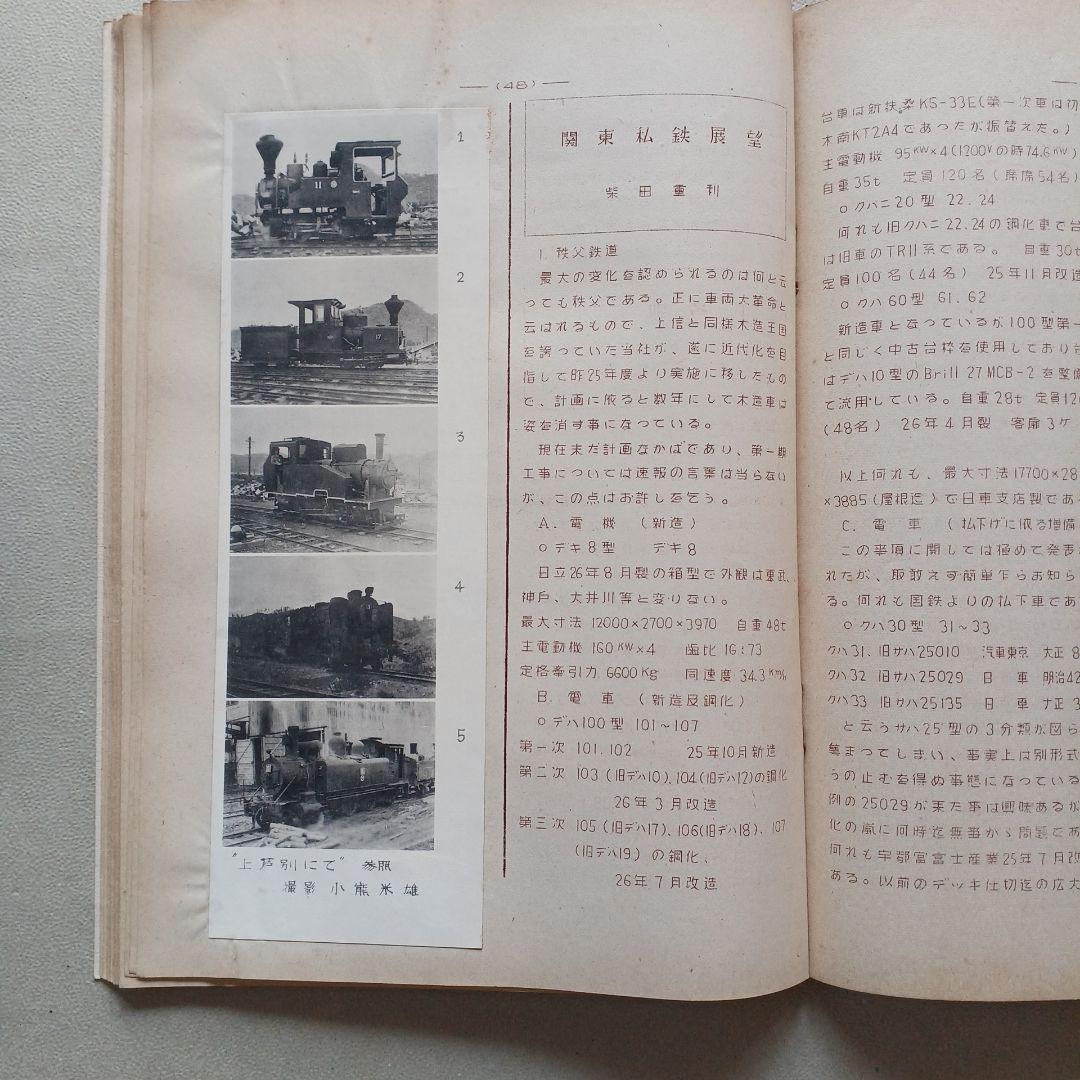 (48)
1
2
3
4
5
"上芦別にて" 参照
撮影 小熊米雄
関東私鉄展望
柴田重利
1. 秩父鉄道
最大の変化を認められるのは何と云
っても秩父である。正に車両大革命と
云はれるもので、上信と同様木造王国
を誇っていた当社が、遂に近代化を目
指して昨25年度より実施に移したもの
で、計画に依ると数年にして木造車は
姿を消す事になっている。
現在未だ計画なかばであり、第一期
工事については速報の言葉は当らない
が、この点はお許しを乞う。
A. 電機 (新造)
○デキ8型 デキ8
日立26年8月製の箱型で外観は東武、
神戸、大井川等と変りない。
最大寸法 12000×2700×3970 自重48t
主電動機 160KW×4 歯比 16:73
定格牽引力 6600Kg 同速度 34.3Km/h
B. 電車 (新造及鋼化)
○デハ100型 101~107
第一次 101.102 25年10月新造
第二次 103(旧デハ10)、104(旧デハ12)の鋼化
26年3月改造
第三次 105(旧デハ17)、106(旧デハ18)、107
(旧デハ19)の鋼化、
26年7月改造
台車は新扶桑KS-33E(第一次車は初
木南KT2A4であったが振替えた。)
主電動機 95KW×4(1200Vの時74.6KW)
自重35t 定員120名(座席54名)
○クハニ20型 22.24
何れも旧クハニ22.24の鋼化車で台
は旧車のTR11系である。 自重30t
定員100名(44名) 25年11月改造
○クハ60型 61.62
新造車となっているが100型第一
と同じく中古台枠を使用しており台
はデハ10型のBrill 27MCB-2を整備
て流用している。自重28t 定員12
(48名) 26年4月製 客扉3ケ
以上何れも、最大寸法17700×28
×3885(屋根迄)で日車支店製であ
C. 電車 (払下げに依る増備
この事項に関しては極めて発表
れたが、取敢えず簡単乍らお知ら
る。何れも国鉄よりの払下車であ
○クハ30型 31~33
クハ31、旧サハ25010 汽車東京 大正8
クハ32 旧サハ25029 日車 明治42
クハ33 旧サハ25135 日車 大正3
と云うサハ25型の3分類が図ら
集まってしまい、事実上は別形式
うの止むを得ぬ事態になっている
例の25029が来た事は興味あるが
化の嵐に何時迄無事か問題であ
何れも宇都宮富士産業25年7月改
ある。以前のデッキ仕切迄の広大